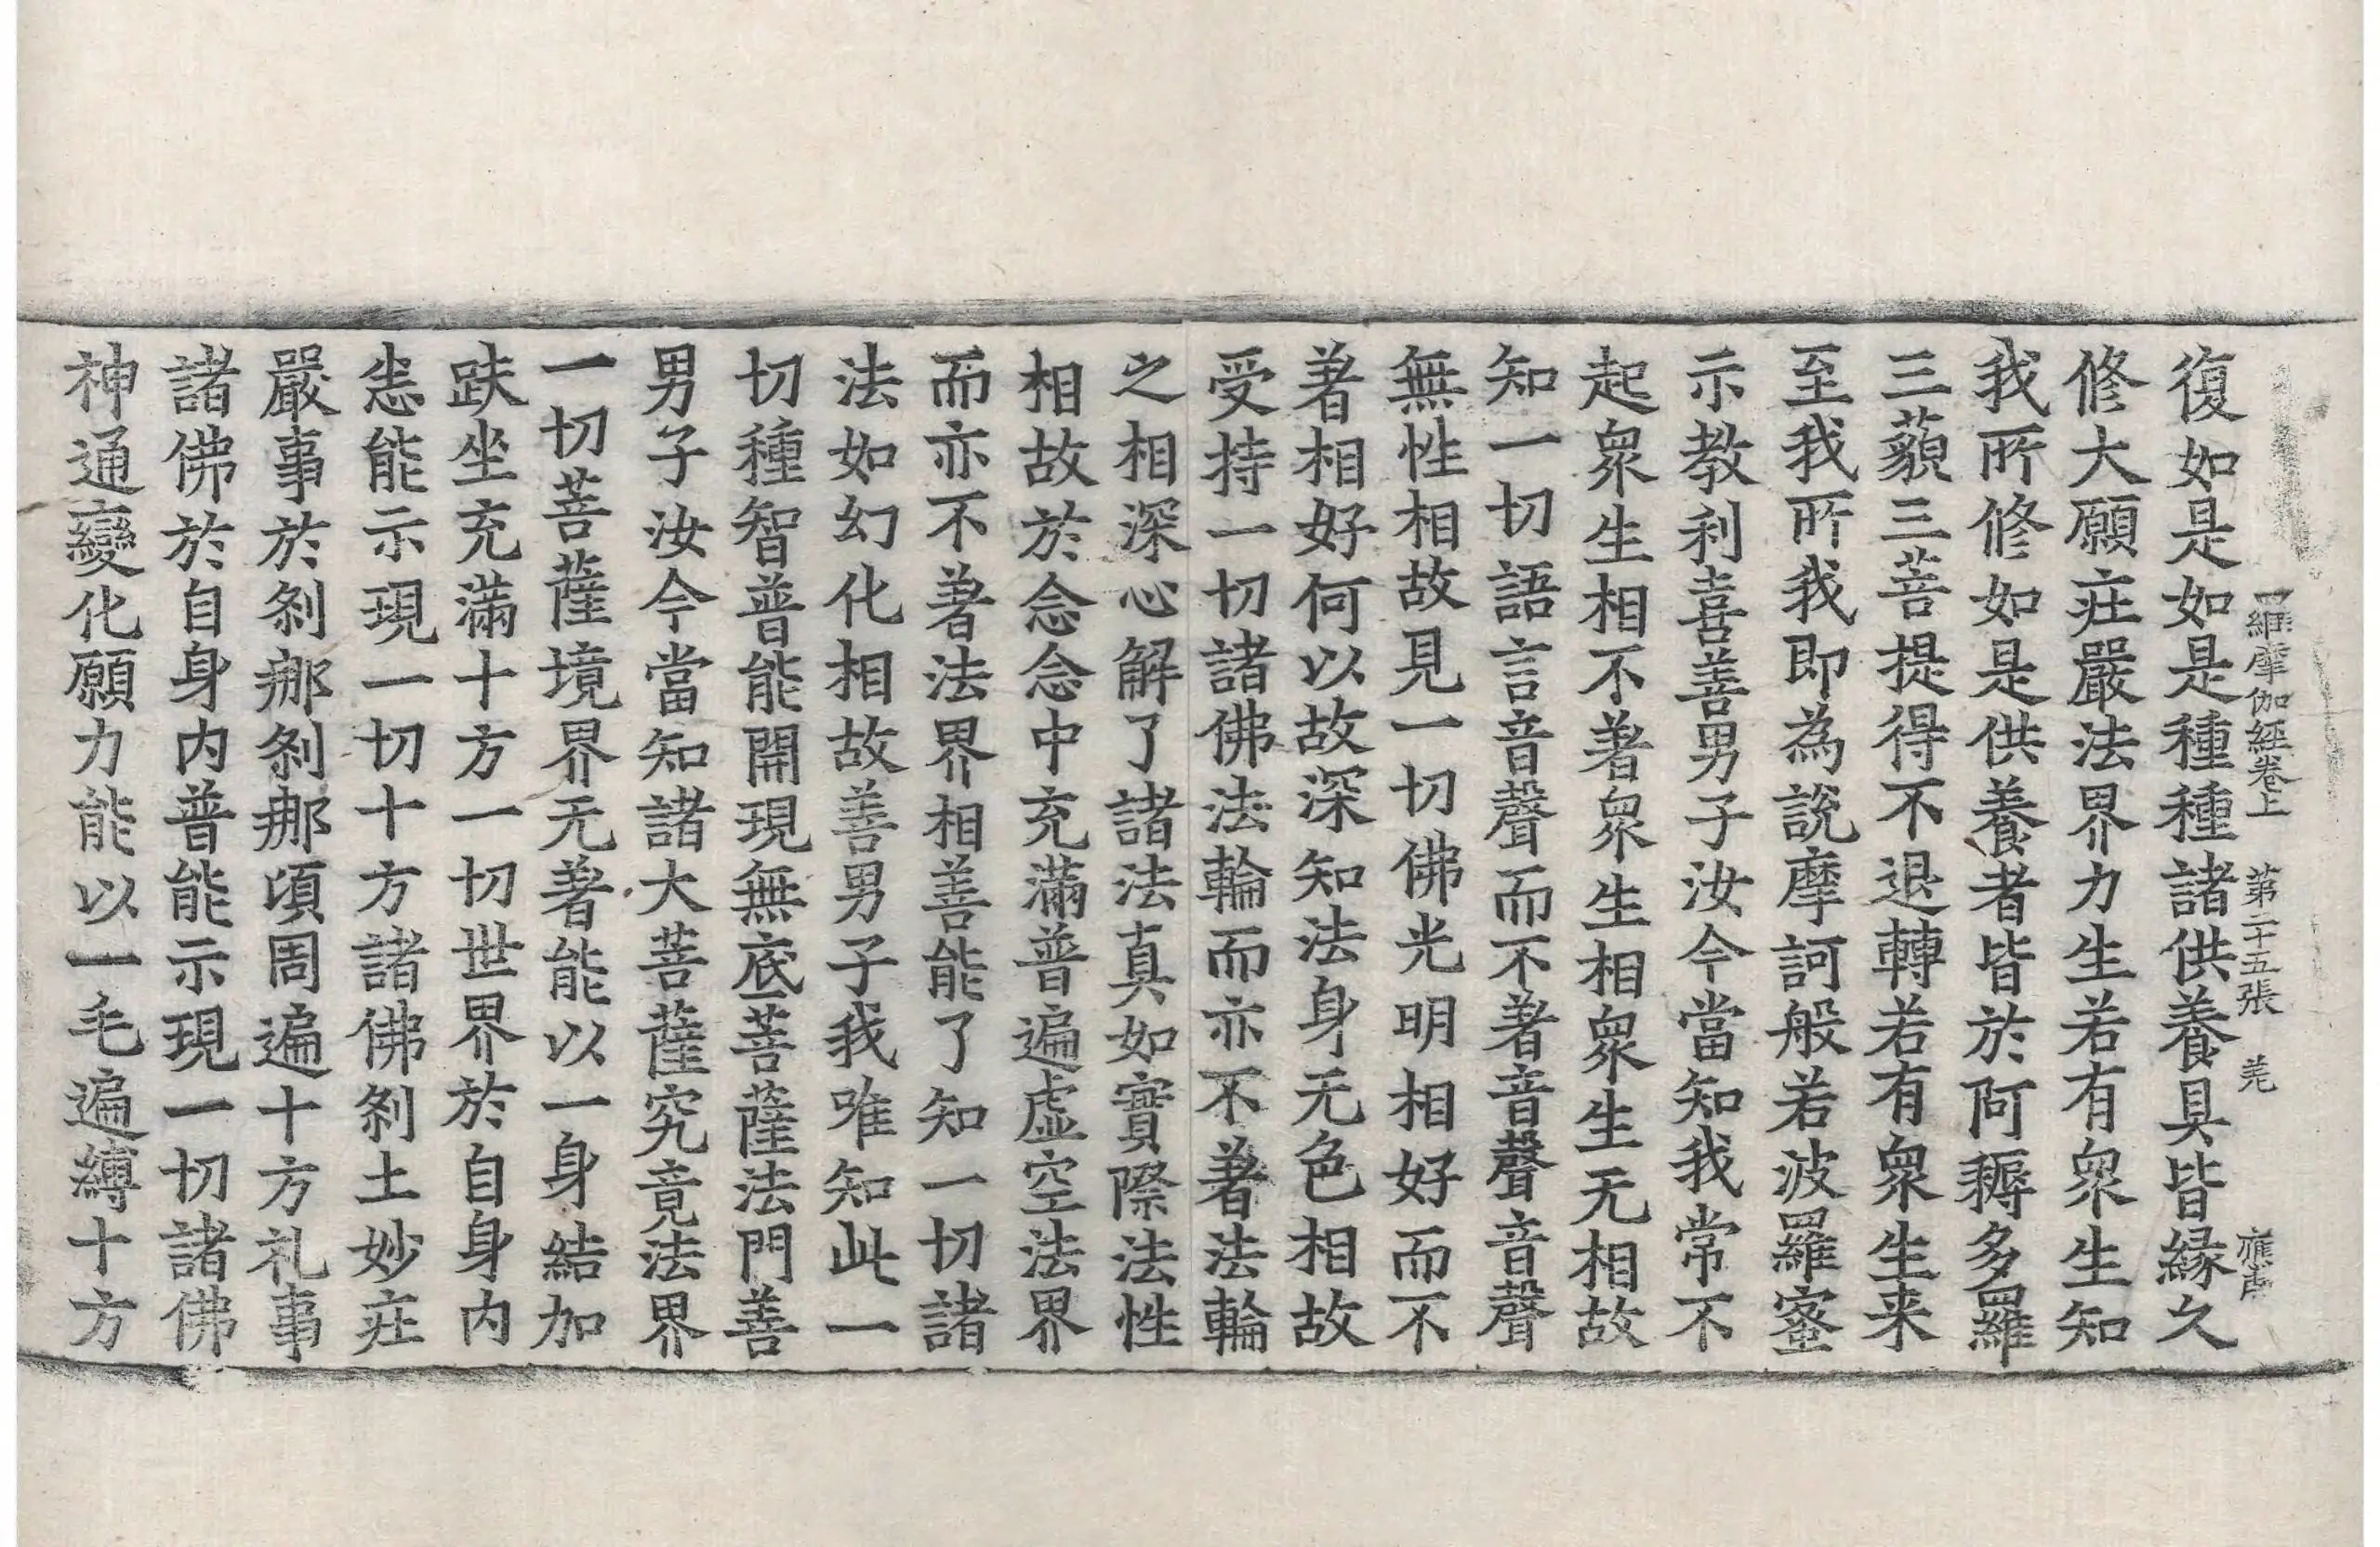 羅摩伽經卷上 第二十五張 羌
復如是如是種種諸供養具皆緣久
修大願莊嚴法界力生若有衆生知
我所修如是供養者皆於阿耨多羅
三藐三菩提得不退轉若有衆生来
至我所我即為說摩訶般若波羅蜜
示教利喜善男子汝今當知我常不
起衆生相不著衆生相衆生无相故
知一切語言音聲而不著音聲音聲
無性相故見一切佛光明相好而不
著相好何以故深知法身无色相故
受持一切諸佛法輪而亦不著法輪
之相深心解了諸法真如實際法性
相故於念念中充滿普遍虛空法界
而亦不著法界相善能了知一切諸
法如幻化相故善男子我唯知此一
切種智普能開現無底菩薩法門善
男子汝今當知諸大菩薩究竟法界
一切菩薩境界无著能以一身結加
趺坐充滿十方一切世界於自身内
悉能示現一切十方諸佛剎土妙莊
嚴事於剎那剎那頃周遍十方礼事
諸佛於自身内普能示現一切諸佛
神通變化願力能以一毛遍縛十方